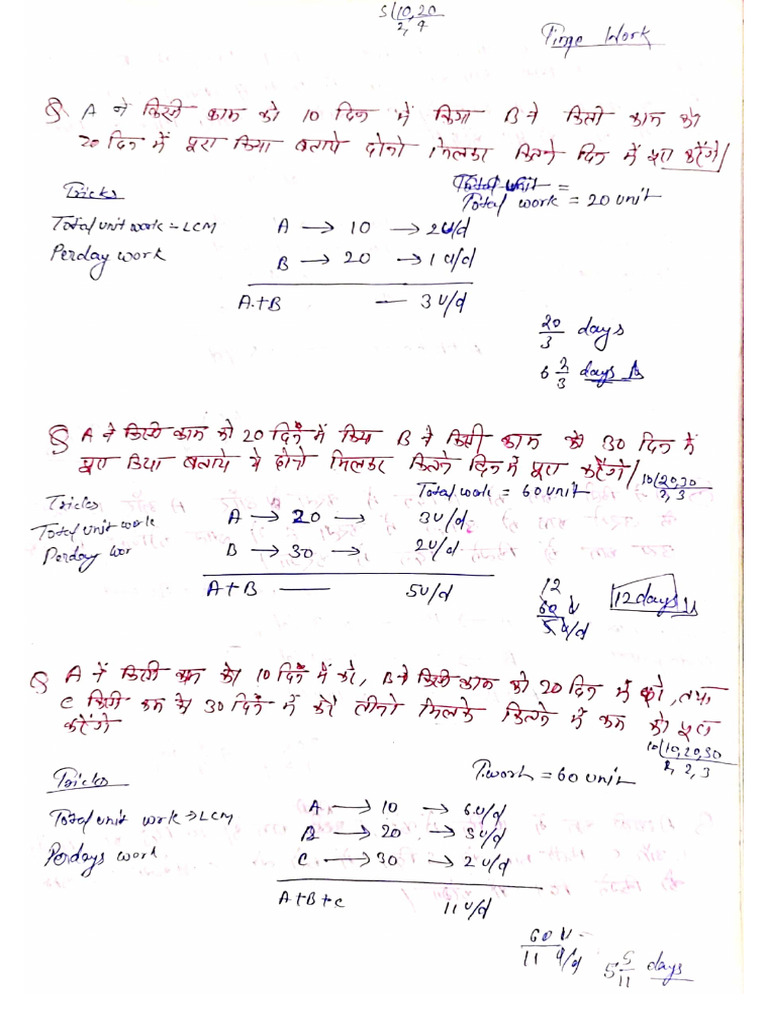 5|10,20
2, 4
Time Work
Q A ने किसी काम को 10 दिन में किया B ने किसी काम को
20 दिन में पूरा किया बताये दोनो मिलकर कितने दिन में पूरा करेंगे/
Tricks
Total unit =
Total work = 20 unit
Total unit work = LCM
A → 10 → 2u/d
Perday work
B → 20 → 1 u/d
A+B — 3 u/d
20/3 days
6 2/3 days
Q A ने किसी काम को 20 दिन में किया B ने किसी काम को 30 दिन में
पूरा किया बताये ये दोनो मिलकर कितने दिन में पूरा करेंगे/
10|20,30
2, 3
Total work = 60 unit
Tricks
Total unit work
A → 20 → 3u/d
Perday wor
B → 30 → 2u/d
A+B — 5u/d
12
60 u
5 u/d
12 days
Q A ने किसी काम को 10 दिन में करे, B ने किसी काम को 20 दिन में करे, तथा
C किसी काम के 30 दिन में करे तीनो मिलके कितने में काम को पूरा
करेंगे
10|10,20,30
1, 2, 3
T.work = 60 unit
Tricks
Total unit work → LCM
A → 10 → 6u/d
B → 20 → 3u/d
Perdays work
C → 30 → 2 u/d
A+B+C 11 u/d
60 u
11 u/d
5 5/11 days